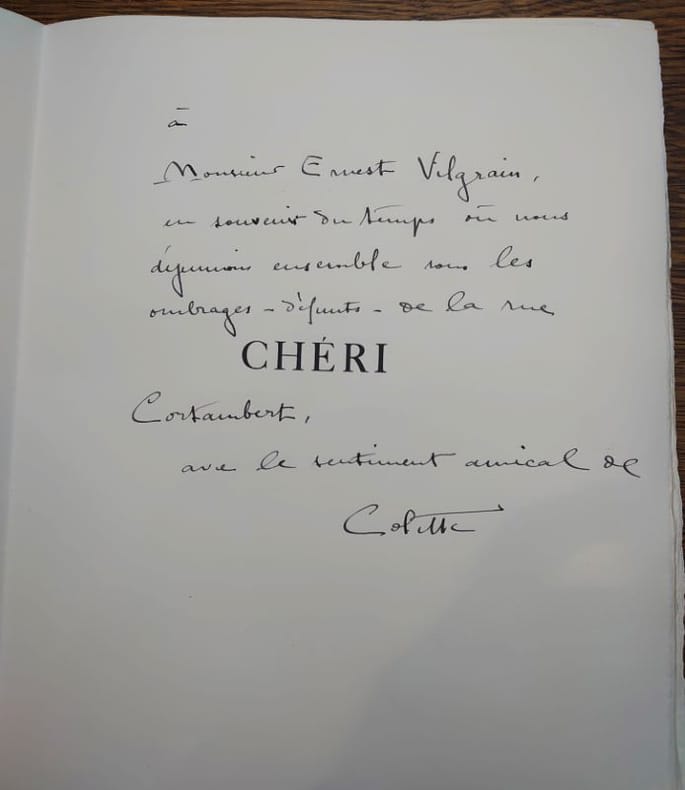 à
Monsieur Ernest Vilgrain,
en souvenir du temps où nous
déjeunions ensemble sous les
ombrages - défunts - de la rue
CHÉRI
Cortambert,
avec le sentiment amical de
Colette